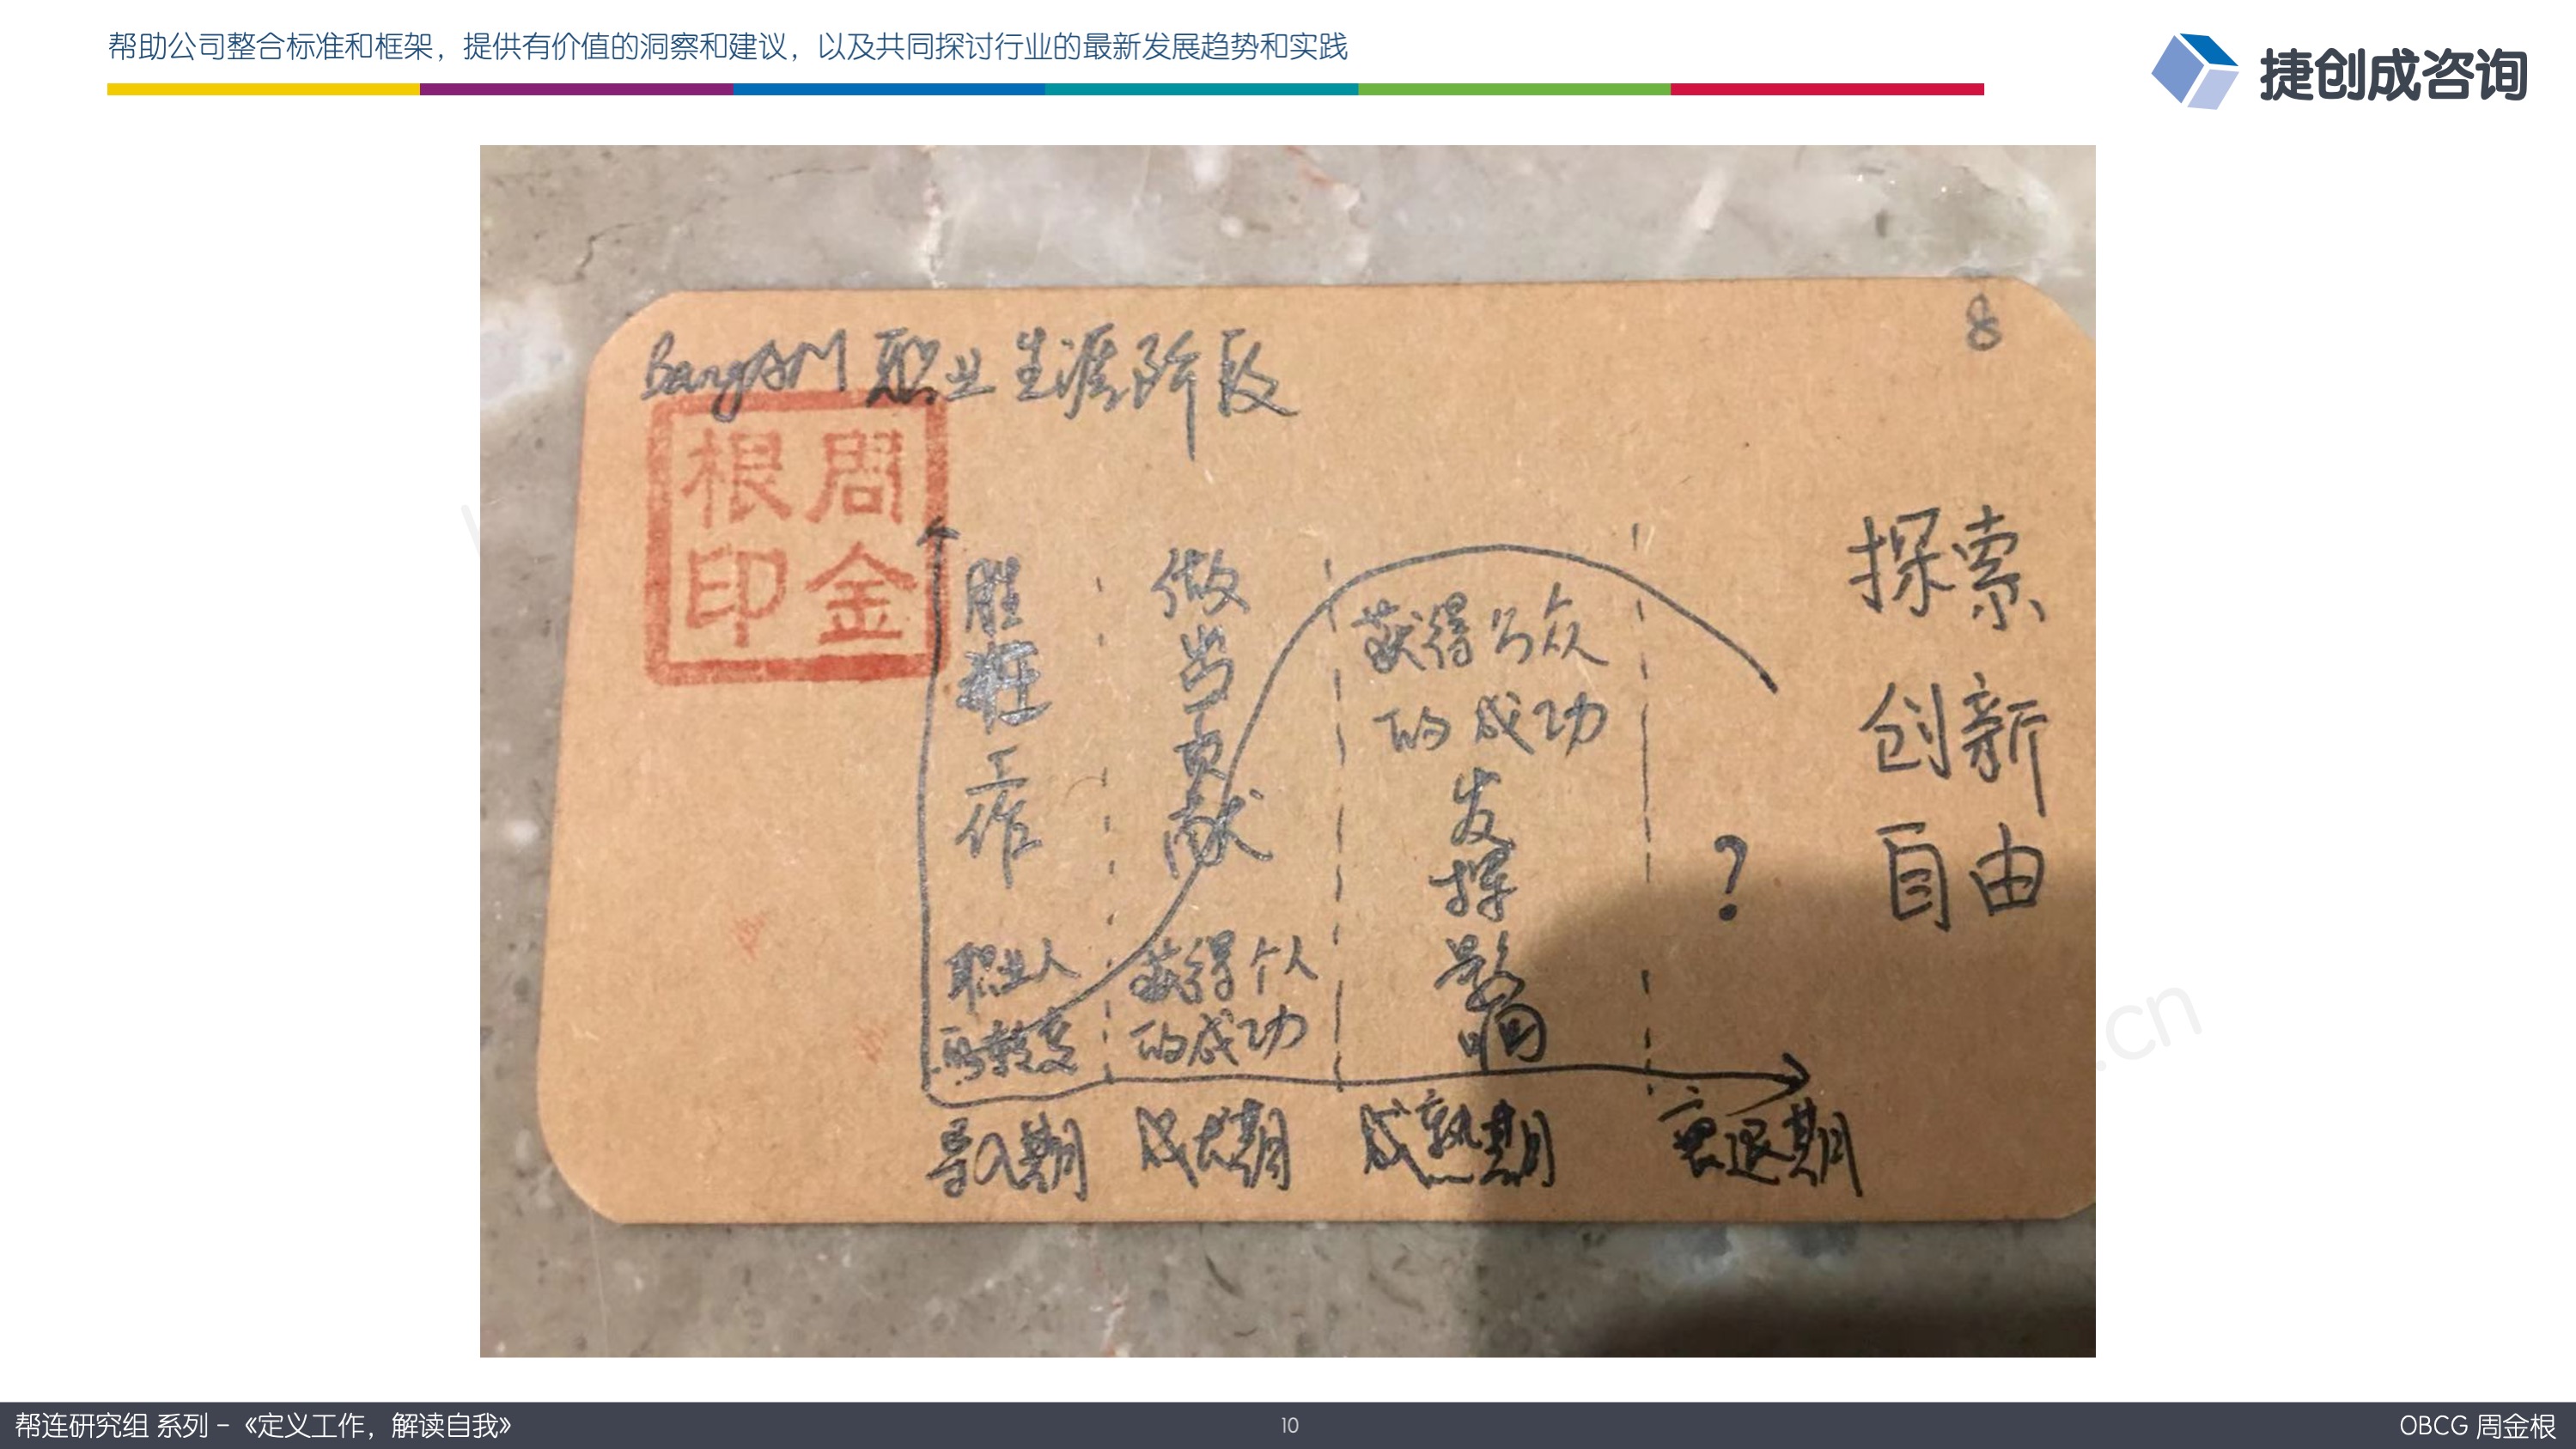 帮助公司整合标准和框架，提供有价值的洞察和建议，以及共同探讨行业的最新发展趋势和实践
捷创成咨询
8
BangAM 职业生涯阶段
周金根印
胜任工作
职业人
的转变
做出贡献
获得个人
的成功
获得与众
的成功
发挥影响
?
探索
创新
自由
导入期
成长期
成熟期
衰退期
.cn
帮连研究组 系列 - 《定义工作，解读自我》
10
OBCG 周金根